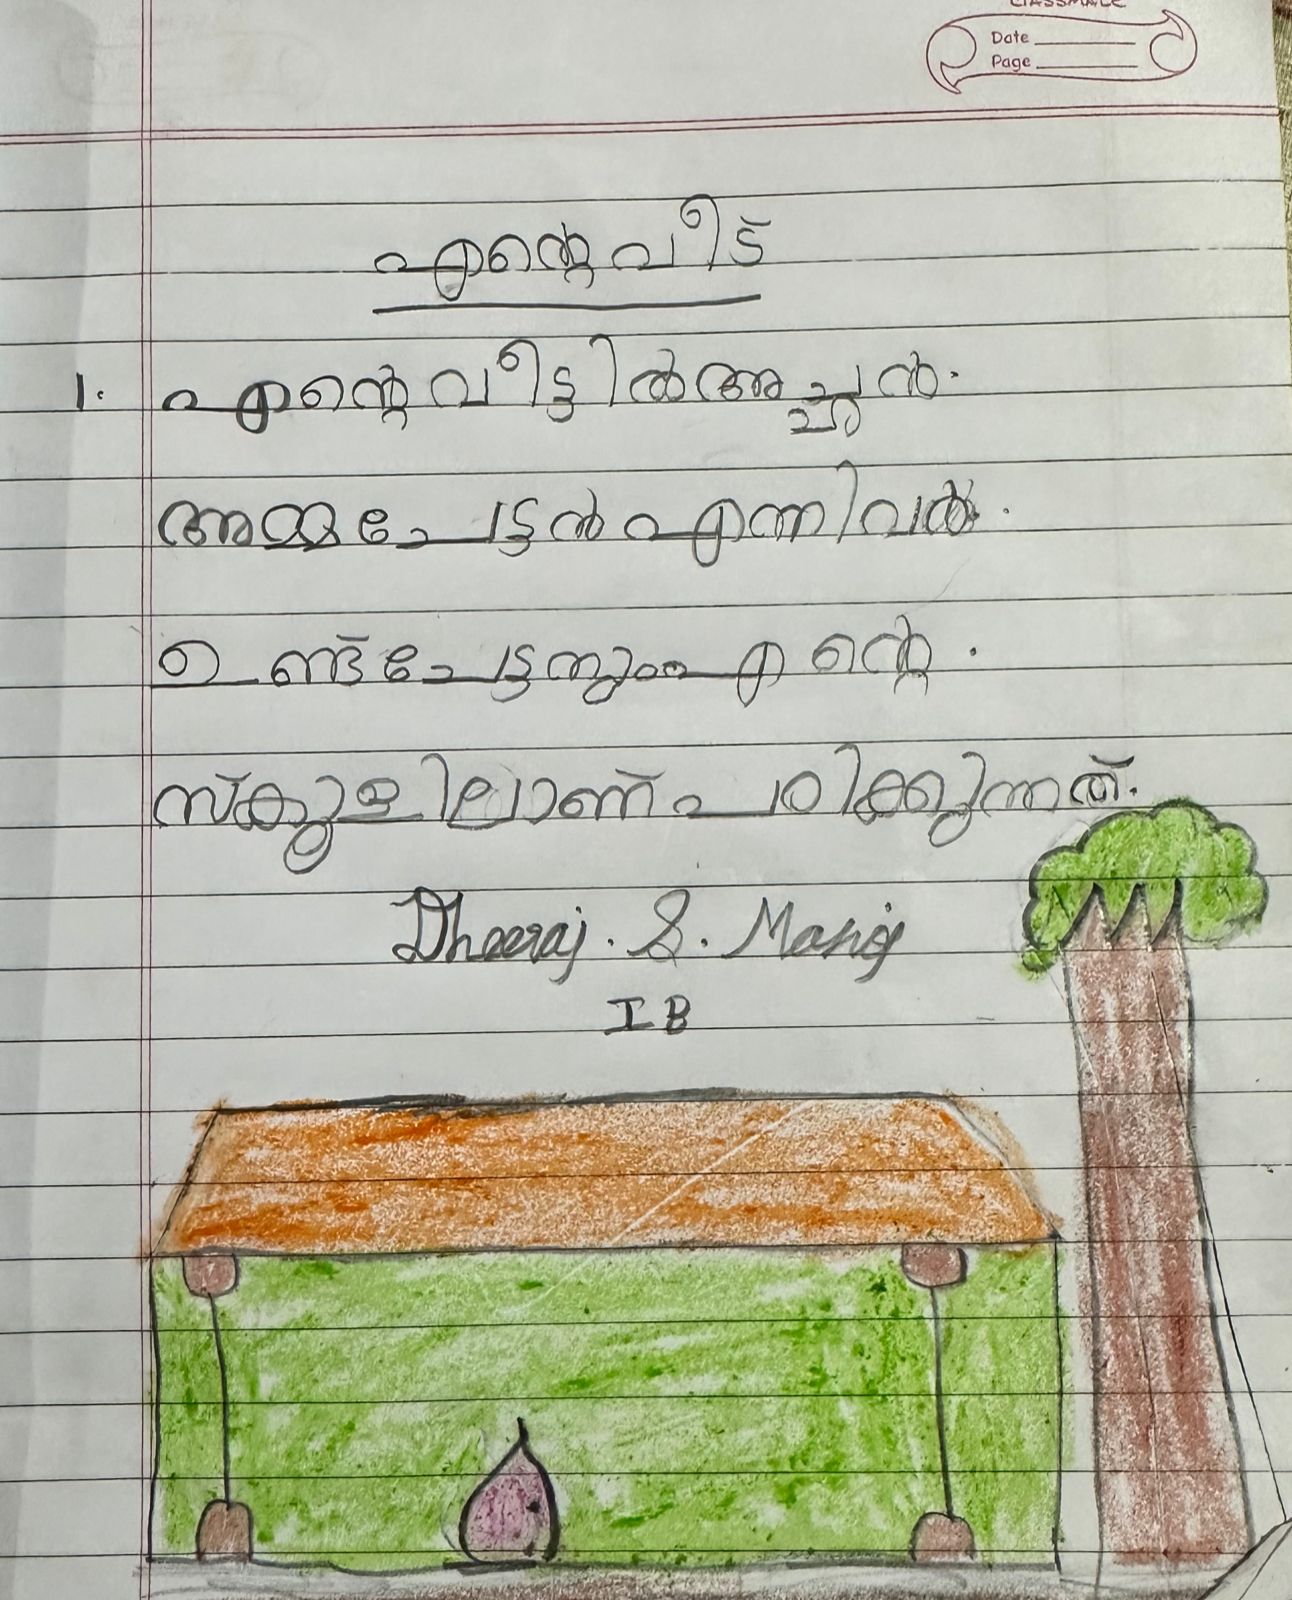 classmate
Date
Page
എന്റെ വീട്
1. എന്റെ വീട്ടിൽ അച്ഛൻ.
അമ്മ ചേട്ടൻ എന്നിവർ.
ഉണ്ട് ചേട്ടനും എന്റെ.
സ്കൂളിലാണ് പഠിക്കുന്നത്.
Dheeraj. S. Manoj
I B